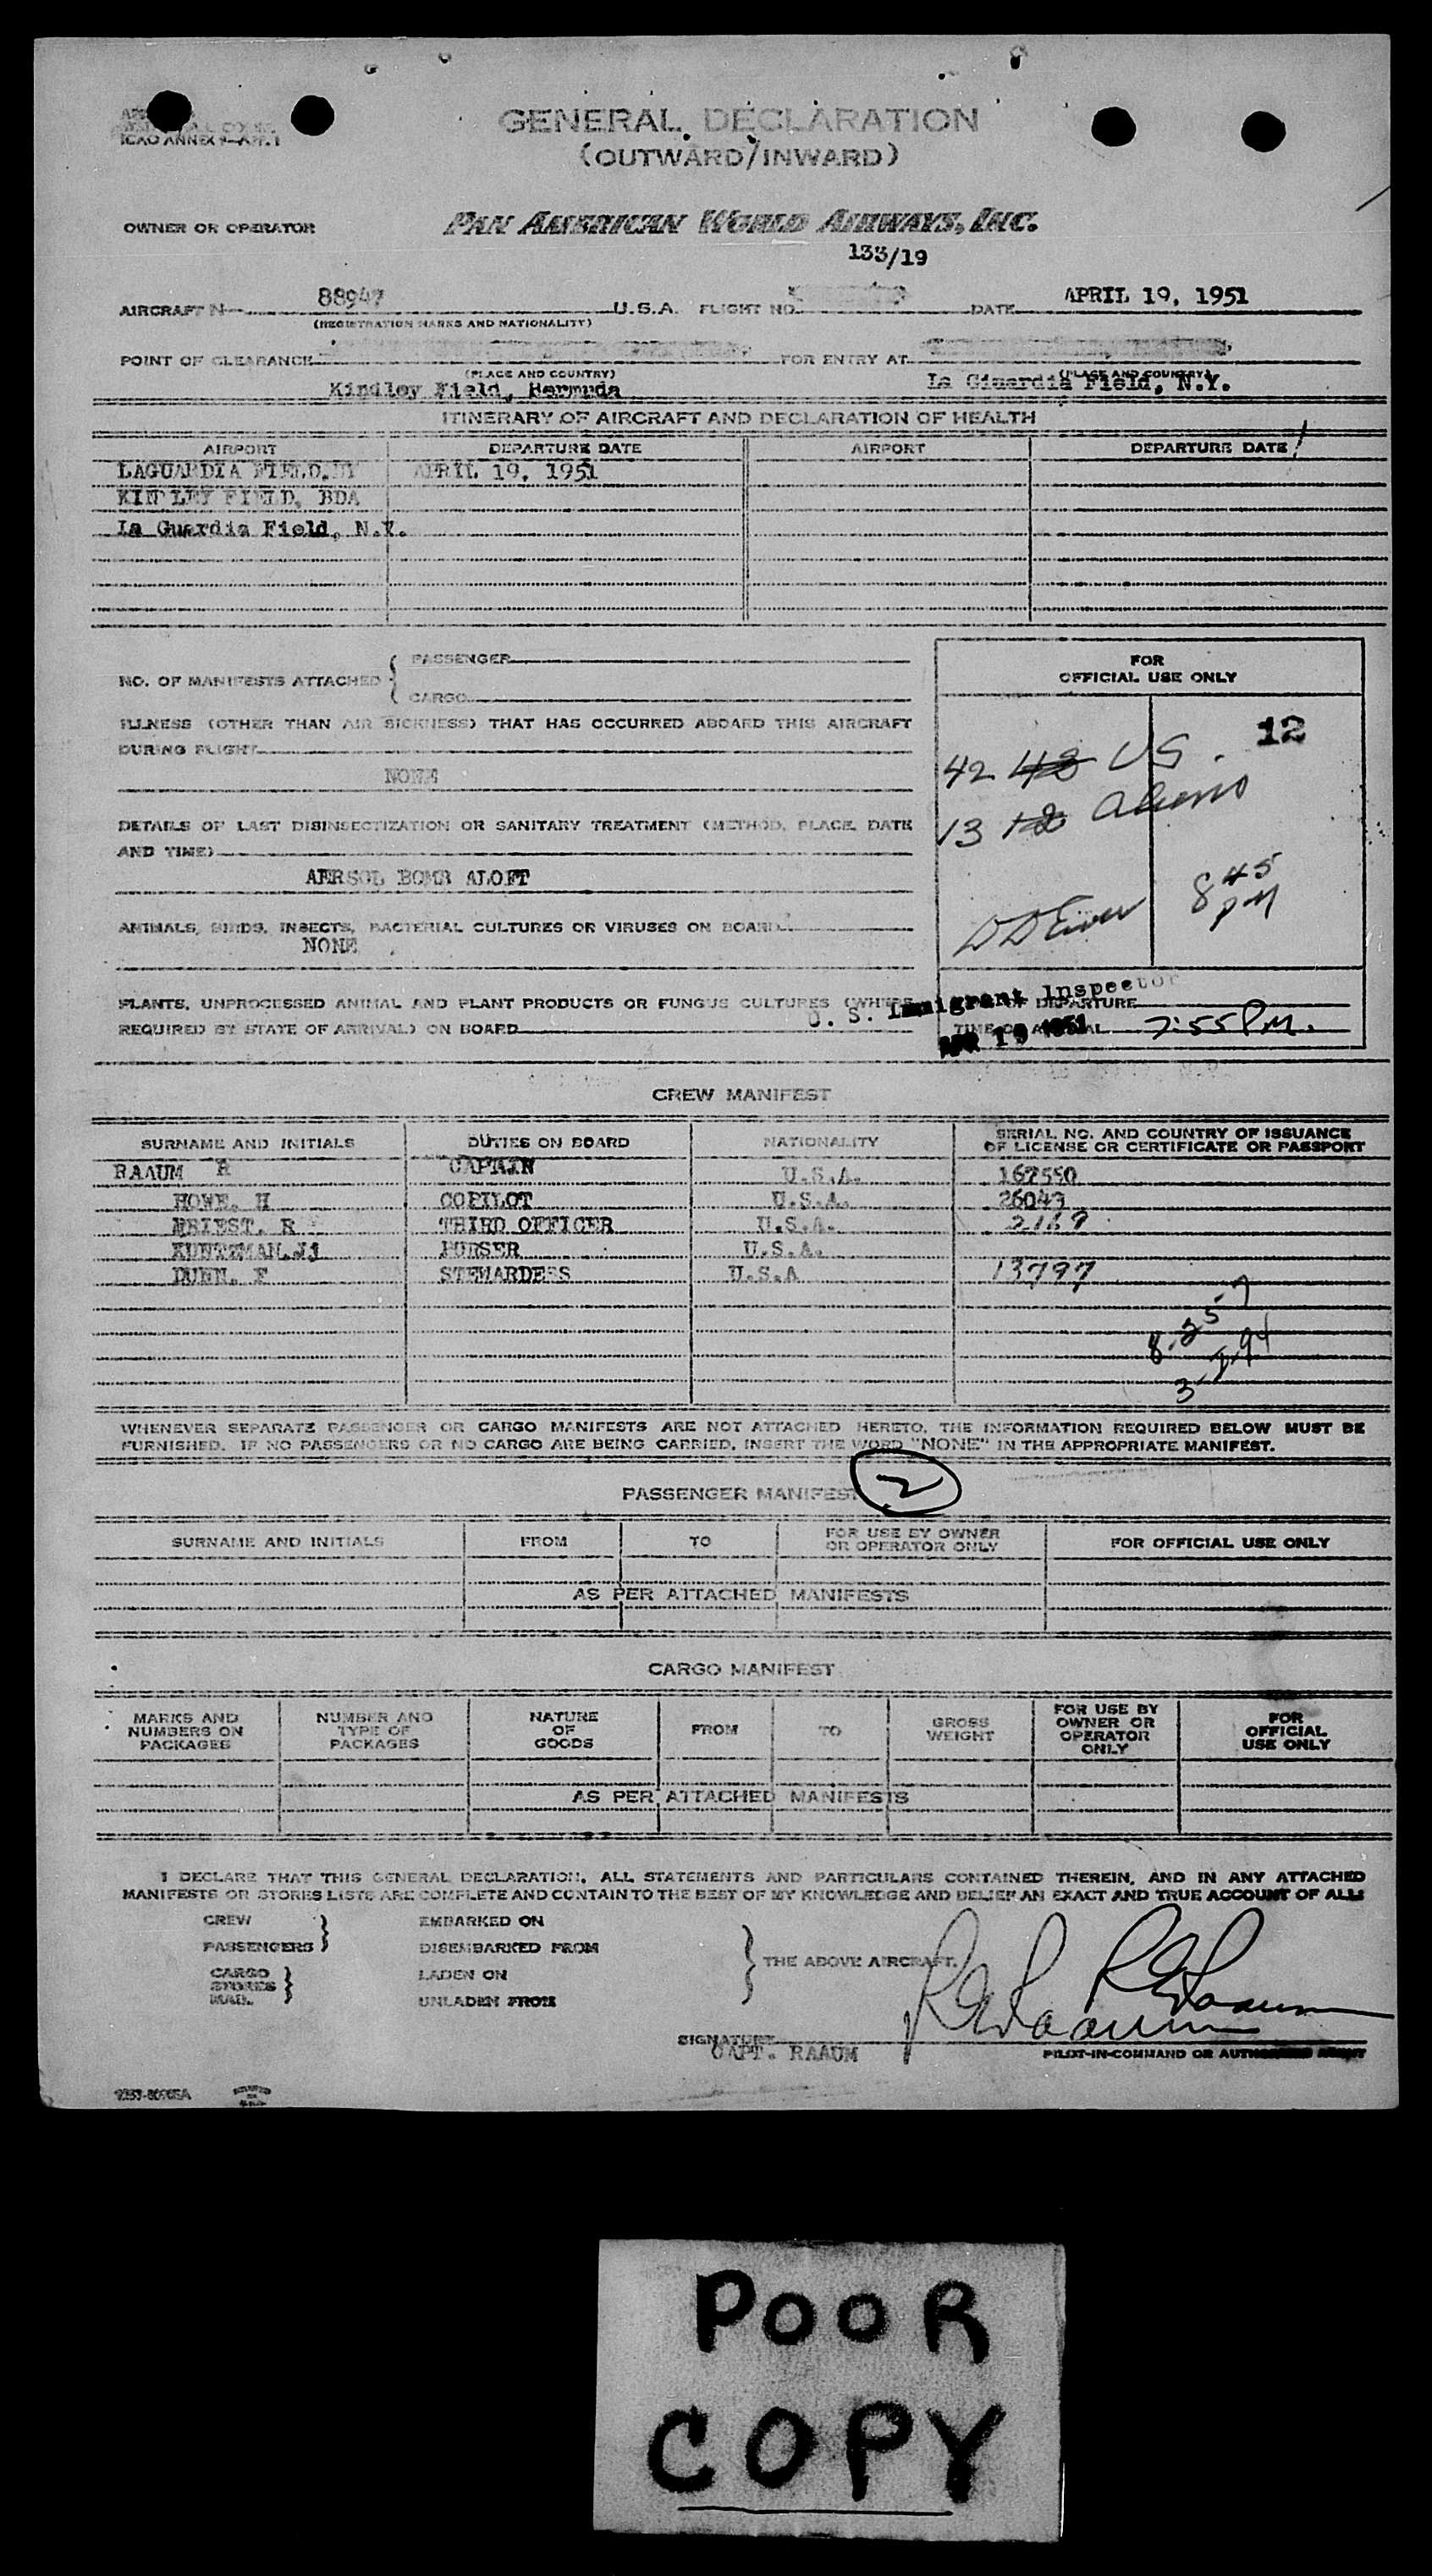 ICAO ANNEX 9—APP. 1
GENERAL DECLARATION
(OUTWARD/INWARD)
OWNER OR OPERATOR PAN AMERICAN WORLD AIRWAYS, INC.
133/19
AIRCRAFT N— 88947 U.S.A. FLIGHT NO. DATE APRIL 19, 1951
(REGISTRATION MARKS AND NATIONALITY)
POINT OF CLEARANCE FOR ENTRY AT
(PLACE AND COUNTRY) (PLACE AND COUNTRY)
Kindley Field, Bermuda La Guardia Field, N.Y.
ITINERARY OF AIRCRAFT AND DECLARATION OF HEALTH
AIRPORT DEPARTURE DATE AIRPORT DEPARTURE DATE
LAGUARDIA FIELD, NY APRIL 19, 1951
KINDLEY FIELD, BDA
La Guardia Field, N.Y.
NO. OF MANIFESTS ATTACHED { PASSENGER
CARGO
ILLNESS (OTHER THAN AIR SICKNESS) THAT HAS OCCURRED ABOARD THIS AIRCRAFT
DURING FLIGHT
NONE
DETAILS OF LAST DISINSECTIZATION OR SANITARY TREATMENT (METHOD, PLACE, DATE
AND TIME)
AERSOL BOMB ALOFT
ANIMALS, BIRDS, INSECTS, BACTERIAL CULTURES OR VIRUSES ON BOARD
NONE
PLANTS, UNPROCESSED ANIMAL AND PLANT PRODUCTS OR FUNGUS CULTURES (WHERE
REQUIRED BY STATE OF ARRIVAL) ON BOARD
FOR
OFFICIAL USE ONLY
12
42 48 US.
13 12 aliens
8 45
PM
U. S. Immigrant Inspector
OF DEPARTURE
APR 19 1951
TIME OF ARRIVAL 7:55 PM.
CREW MANIFEST
SURNAME AND INITIALS DUTIES ON BOARD NATIONALITY SERIAL NO. AND COUNTRY OF ISSUANCE
OF LICENSE OR CERTIFICATE OR PASSPORT
RAAUM R CAPTAIN U.S.A. 162550
HOWE, H COPILOT U.S.A. 26043
PRIEST, R THIRD OFFICER U.S.A. 2169
KUNTZMAN, J PURSER U.S.A.
DUNN, F STEWARDESS U.S.A 13797
8-25-7
3-7-94
WHENEVER SEPARATE PASSENGER OR CARGO MANIFESTS ARE NOT ATTACHED HERETO, THE INFORMATION REQUIRED BELOW MUST BE
FURNISHED. IF NO PASSENGERS OR NO CARGO ARE BEING CARRIED, INSERT THE WORD "NONE" IN THE APPROPRIATE MANIFEST.
PASSENGER MANIFEST 2
SURNAME AND INITIALS FROM TO FOR USE BY OWNER
OR OPERATOR ONLY FOR OFFICIAL USE ONLY
AS PER ATTACHED MANIFESTS
CARGO MANIFEST
MARKS AND
NUMBERS ON
PACKAGES
NUMBER AND
TYPE OF
PACKAGES
NATURE
OF
GOODS
FROM
TO
GROSS
WEIGHT
FOR USE BY
OWNER OR
OPERATOR
ONLY
FOR
OFFICIAL
USE ONLY
AS PER ATTACHED MANIFESTS
I DECLARE THAT THIS GENERAL DECLARATION, ALL STATEMENTS AND PARTICULARS CONTAINED THEREIN, AND IN ANY ATTACHED
MANIFESTS OR STORES LISTS ARE COMPLETE AND CONTAIN TO THE BEST OF MY KNOWLEDGE AND BELIEF AN EXACT AND TRUE ACCOUNT OF ALL:
CREW EMBARKED ON
PASSENGERS DISEMBARKED FROM THE ABOVE AIRCRAFT.
CARGO LADEN ON
STORES
MAIL UNLADEN FROM
R E Raaum
R E Raaum
SIGNATURE
CAPT. RAAUM PILOT-IN-COMMAND OR AUTHORIZED AGENT
POOR
COPY